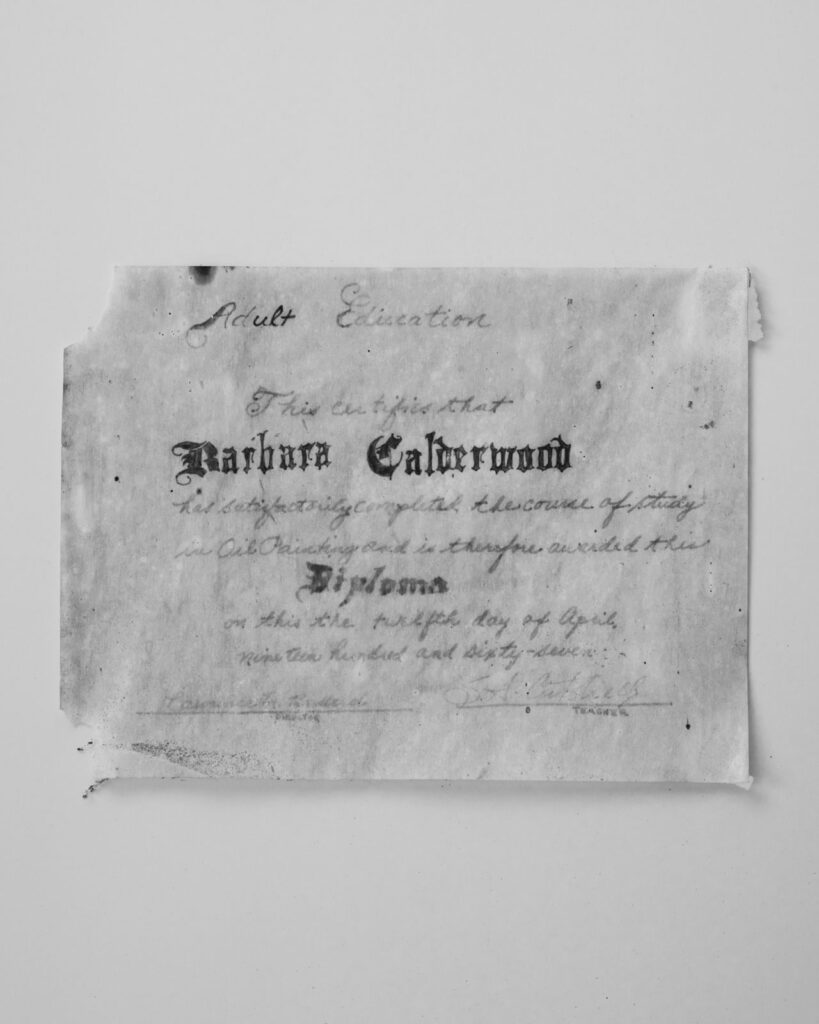 Adult Education
This certifies that
Barbara Calderwood
has satisfactorily completed the course of study
in Oil Painting and is therefore awarded this
Diploma
on this the twelfth day of April,
nineteen hundred and sixty-seven.
DIRECTOR
TEACHER